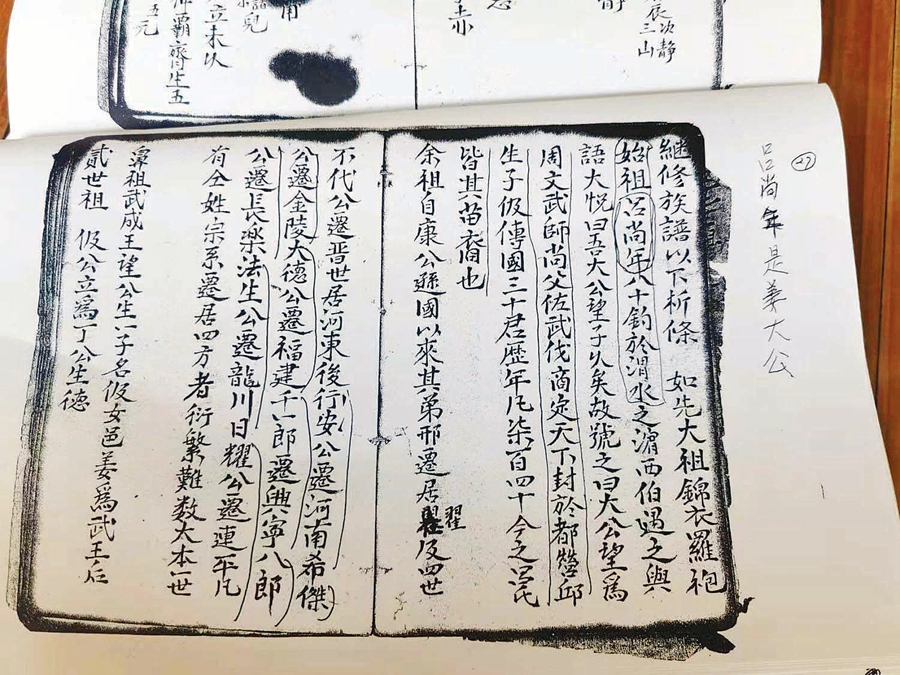 ㉗
吕尚年是姜大公
継修族譜以下析條 如先大祖錦衣羅袍
始祖吕尚年八十釣於渭水之湄西伯遇之與
語大悦曰吾大公望子久矣故號之曰大公望爲
周文武師尚父佐武伐商定天下封於都營邱
生子伋傳國三十君歴年凢柒百四十今之吕氏
皆其苗裔也
余祖自康公遜國以來其弟邢遷居
翟
及四世
不代公遷晋世居河東後行安公遷河南希傑
公遷金陵大德公遷福建千一郎遷興寧八郎
公遷長楽法生公遷龍川日耀公遷連平凢
有仝姓宗系遷居四方者衍繁難数太本一世
祖武成王望公生一子名伋女邑姜爲武王后
貳世祖 伋公立爲丁公生德
衣次静
三山
静
赤
兒
立未
覇齊生五
元